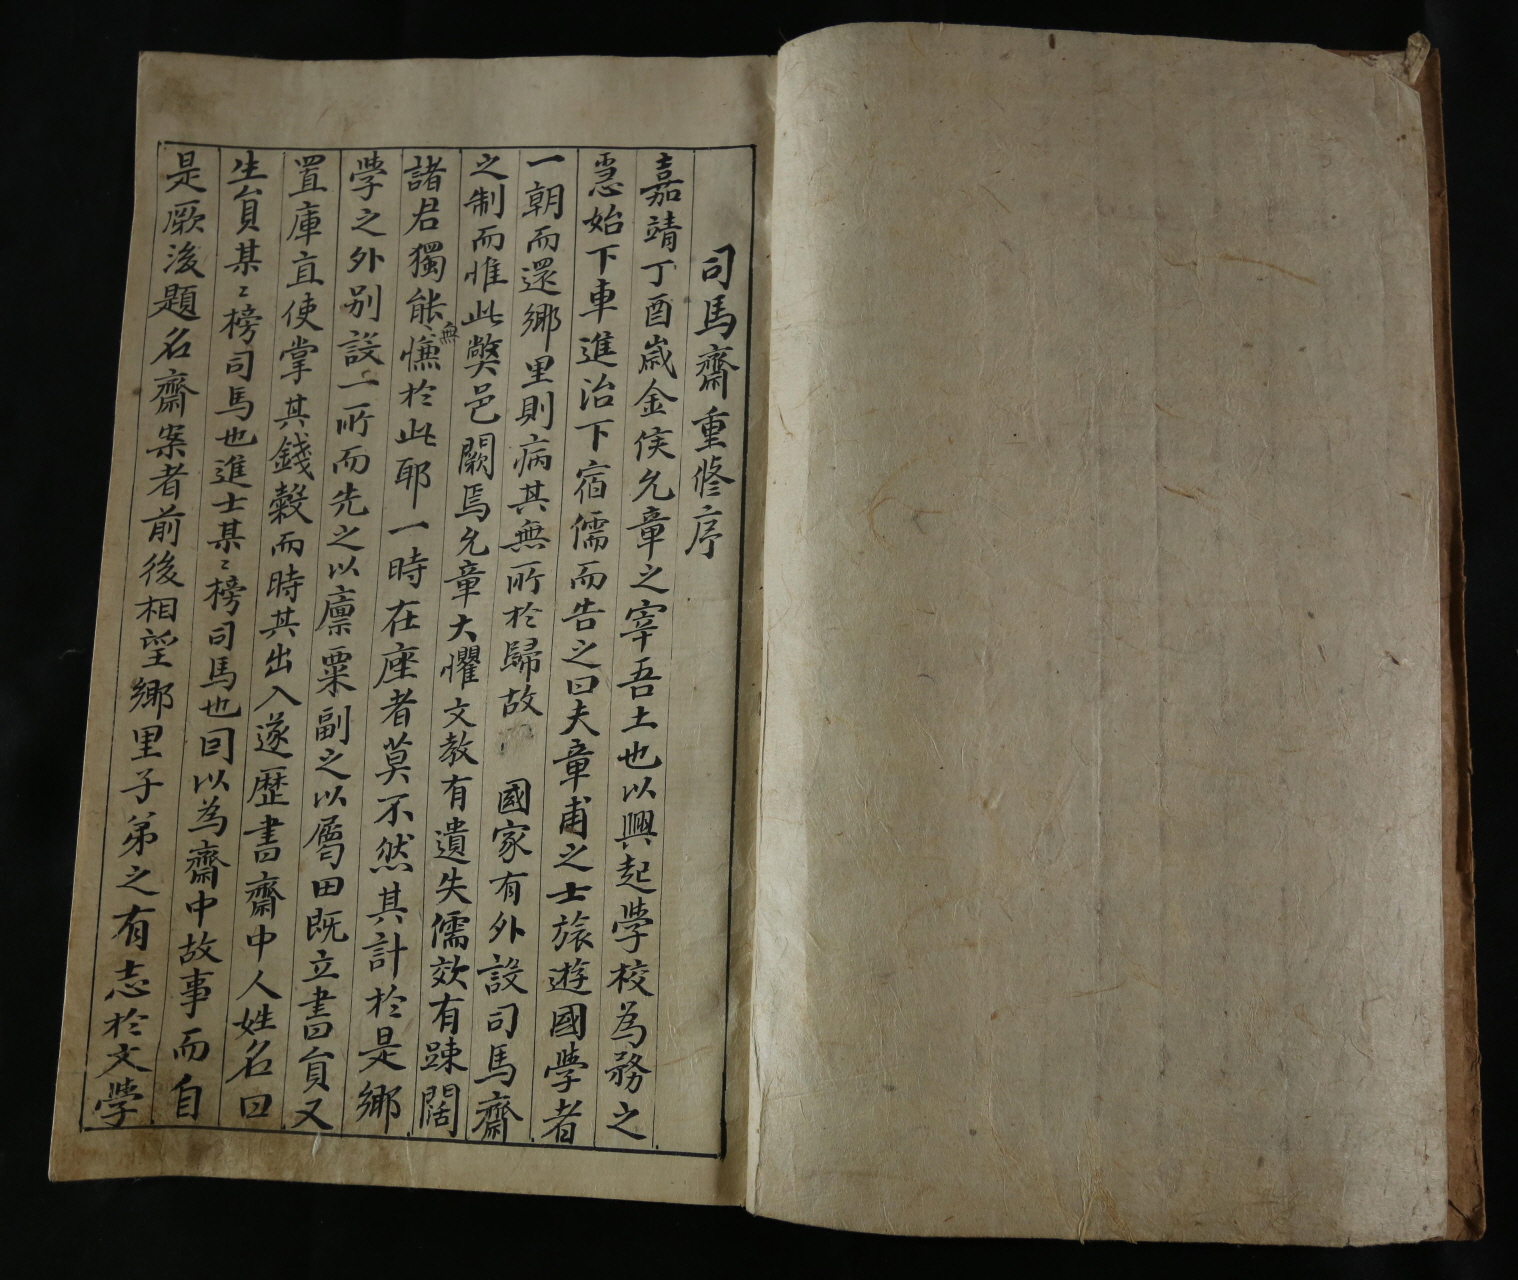 司馬齋重修序
嘉靖丁酉歲金侯允章之宰吾土也以興起學校為務之
急始下車進治下宿儒而告之曰夫章甫之士旅遊國學者
一朝而還鄉里則病其無所於歸故 國家有外設司馬齋
之制而惟此獘邑闕焉允章大懼文教有遺失儒效有踈闊
諸君獨能無慊於此耶一時在座者莫不然其計於是鄉
學之外別設一所而先之以廪粟副之以屬田既立書員又
置庫直使掌其錢穀而時其出入遂歷書齋中人姓名曰
生員某〻榜司馬也進士某〻榜司馬也因以為齋中故事而自
是厥後題名齋案者前後相望鄉里子弟之有志於文學